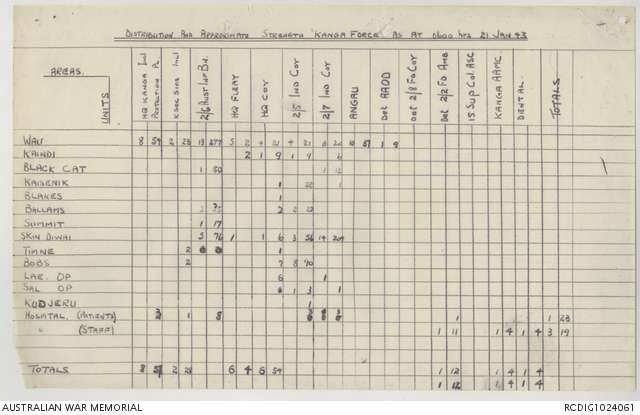 DISTRIBUTION AND APPROXIMATE STRENGTH "KANGA FORCE" AS AT 0600 hrs 21 JAN 43
AREAS.
UNITS
HQ KANGA Incl
PROTECTION PL
K SEC SIGS Incl
2/6 AUST INF BN.
HQ FLEAT
HQ COY
2/5 IND COY
2/7 IND COY
ANGAU
DET RAOD
DET 2/8 FD COY
DET 2/2 FD AMB
15 SUP COL ASC
KANGA AAMC
DENTAL.
TOTALS
WAU 8 59 2 23 13 277 5 2 4 21 4 21 8 10 57 1 9
KAINDI 2 1 9 1 9 6
BLACK CAT 1 50 1 12
KAISENIK 1 1
BLAKES 1
BALLAMS 2 2
SUMMIT 1 17
SKIN DIWAI 3 76 1 1 6 3 56 14 209
TIMNE 2 1
BOBS 2 7 8 40
LAE. OP 6 1
SAL OP 1 3 1
KUDJERU 1
HOSPITAL. (PATIENTS) 1 8 1 1 23
" (STAFF) 1 11 1 4 1 4 3 19
TOTALS 8 2 28 6 4 6 54 1 12 1 4 1 4
1 12 1 4 1 4
AUSTRALIAN WAR MEMORIAL
RCDIG1024061